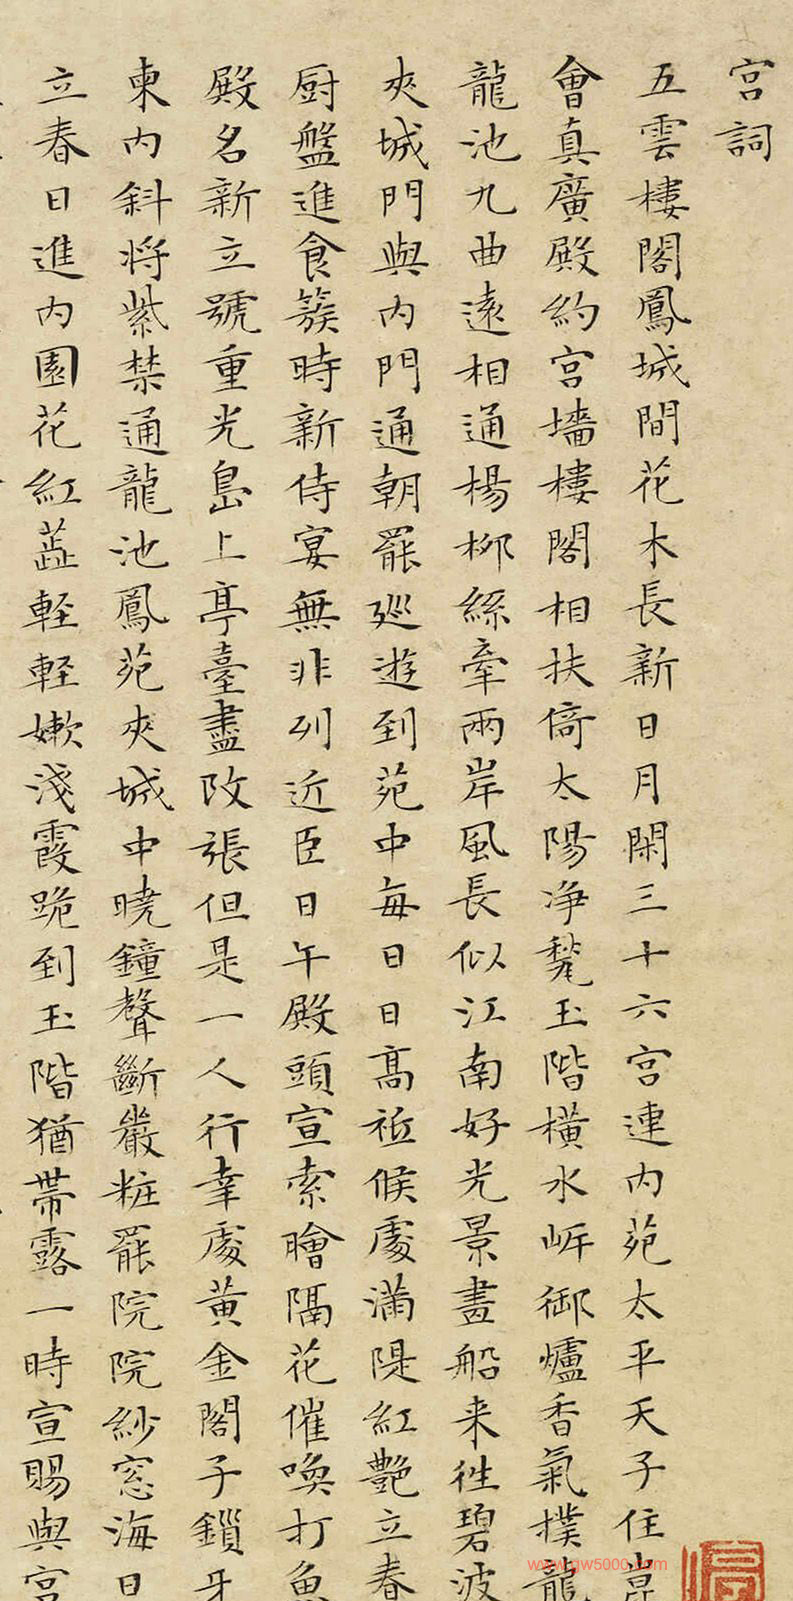 宮詞
五雲樓閣鳳城間花木長新日月閑三十六宮連內苑太平天子住崑
會真廣殿約宮墻樓閣相扶倚太陽净甃玉階橫水岸御爐香氣撲龍
龍池九曲遠相通楊柳絲牽兩岸風長似江南好光景畫船来往碧波
夾城門與内門通朝罷廵遊到苑中每日日高祗候處滿隄紅艶立春
厨盤進食簇時新侍宴無非列近臣日午殿頭宣索鱠隔花催喚打魚
殿名新立號重光島上亭臺盡改張但是一人行幸處黃金閣子鎖牙
東内斜将紫禁通龍池鳳苑夾城中曉鐘聲斷嚴粧罷院院紗窓海日
立春日進内園花紅蘂軽軽嫩淺霞跪到玉階猶帶露一時宣賜與宮
www.qw5000.com